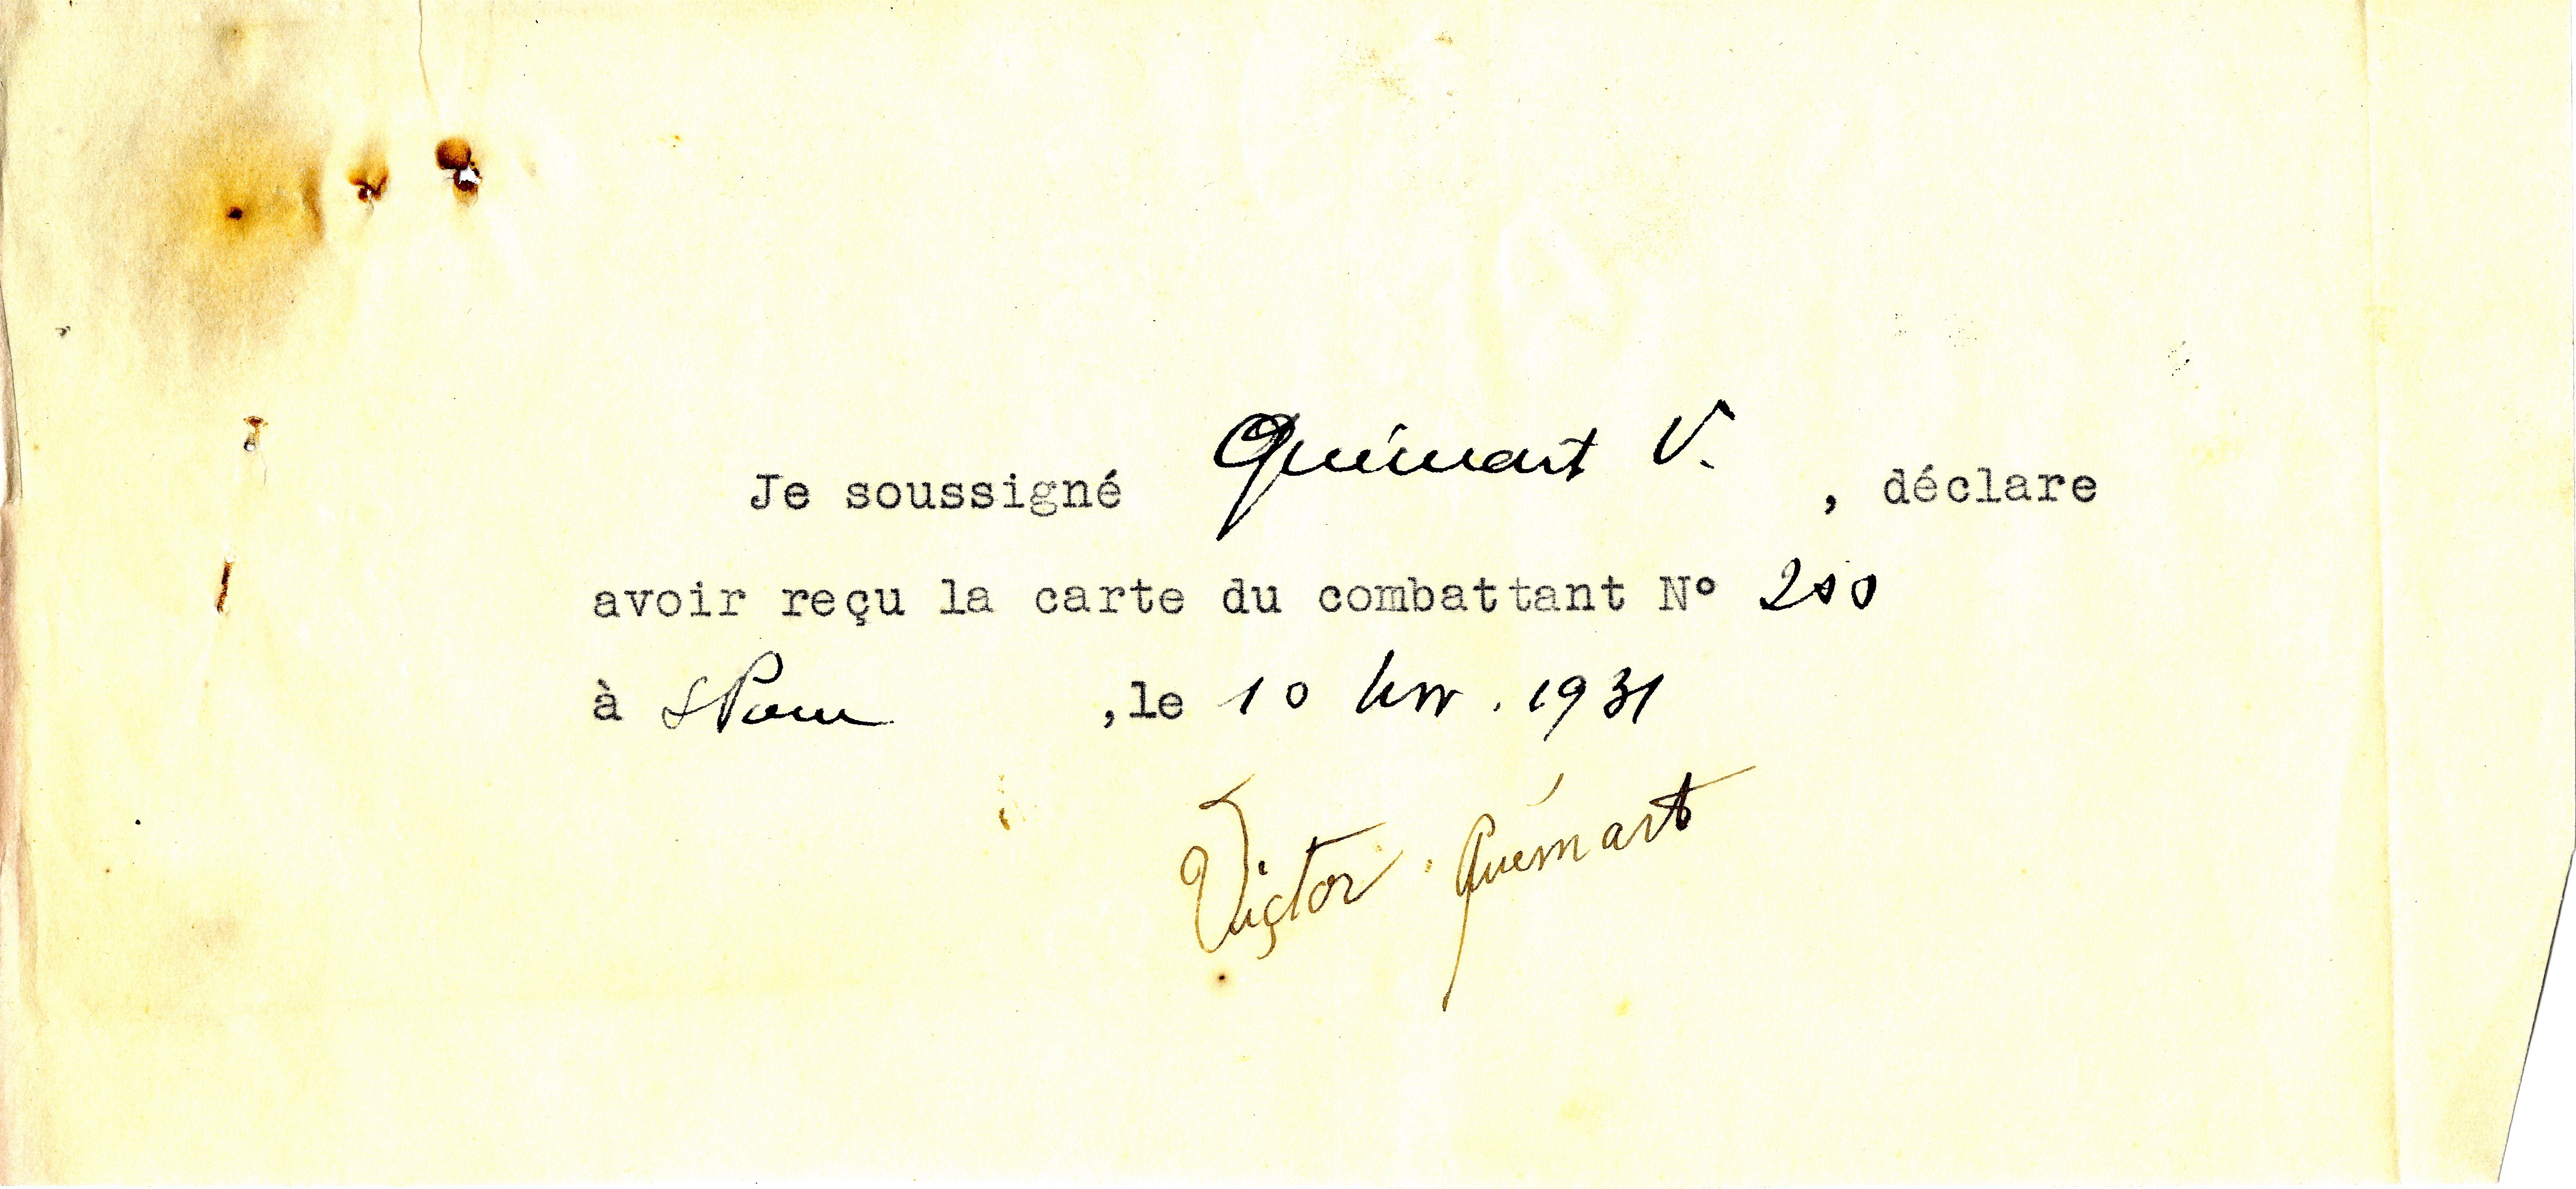 Je soussigné Quémart V. , déclare
avoir reçu la carte du combattant N° 200
à , le 10 1931
Victor Quémart